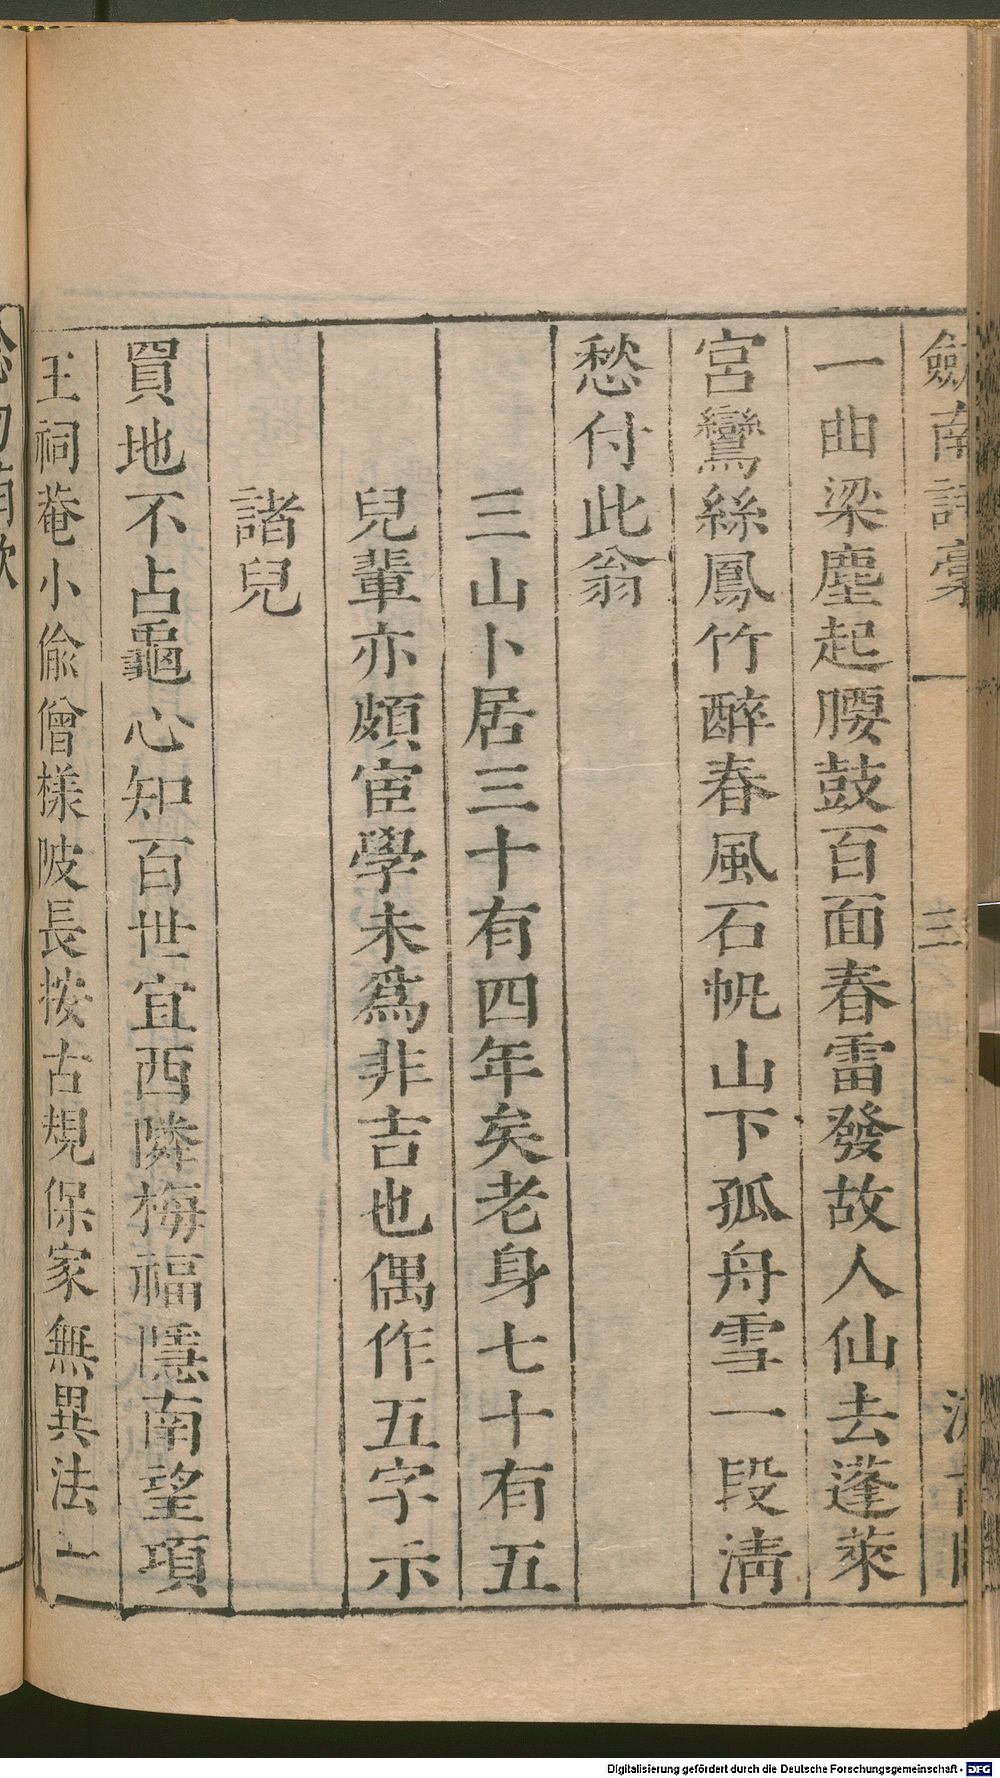 劒南詩藳
三
一曲梁塵起腰鼓百面春雷發故人仙去蓬萊
宮鸞絲鳳竹醉春風石帆山下孤舟雪一段淸
愁付此翁
三山卜居三十有四年矣老身七十有五
兒輩亦頗宦學未爲非吉也偶作五字示
諸兒
買地不占龜心知百世宜西隣梅福隱南望項
王祠菴小偸僧樣陂長按古規保家無異法上
Digitalisierung gefördert durch die Deutsche Forschungsgemeinschaft - DFG